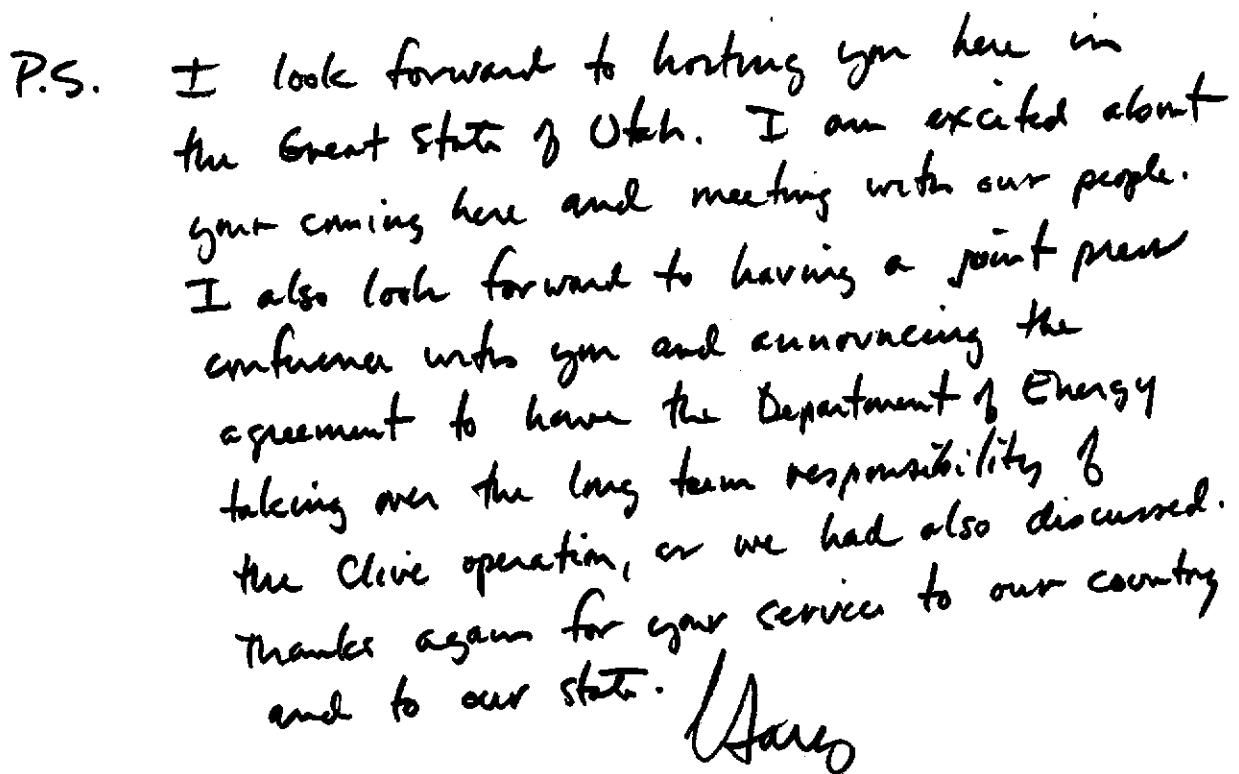 P.S. I look forward to hosting you here in
the Great State of Utah. I am excited about
your coming here and meeting with our people.
I also look forward to having a joint press
conference with you and announcing the
agreement to have the Department of Energy
taking over the long term responsibility of
the Clive operation, as we had also discussed.
Thanks again for your service to our country
and to our state.